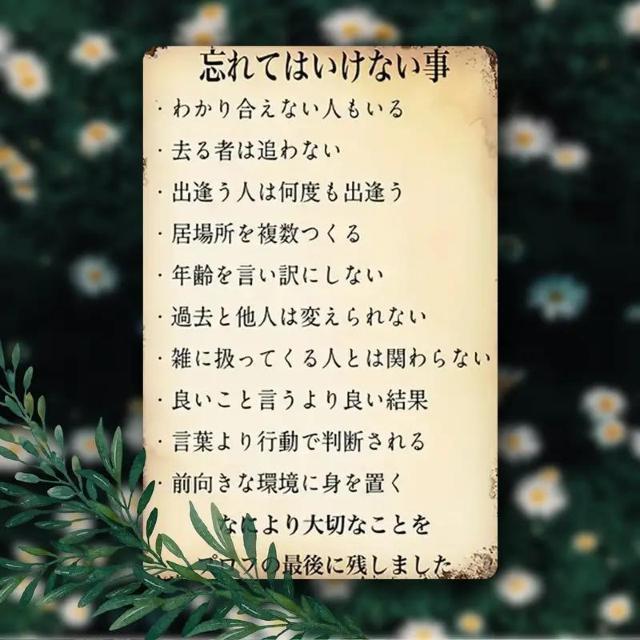 忘れてはいけない事
・わかり合えない人もいる
・去る者は追わない
・出逢う人は何度も出逢う
・居場所を複数つくる
・年齢を言い訳にしない
・過去と他人は変えられない
・雑に扱ってくる人とは関わらない
・良いこと言うより良い結果
・言葉より行動で判断される
・前向きな環境に身を置く
なにより大切なことを
プロフの最後に残しました